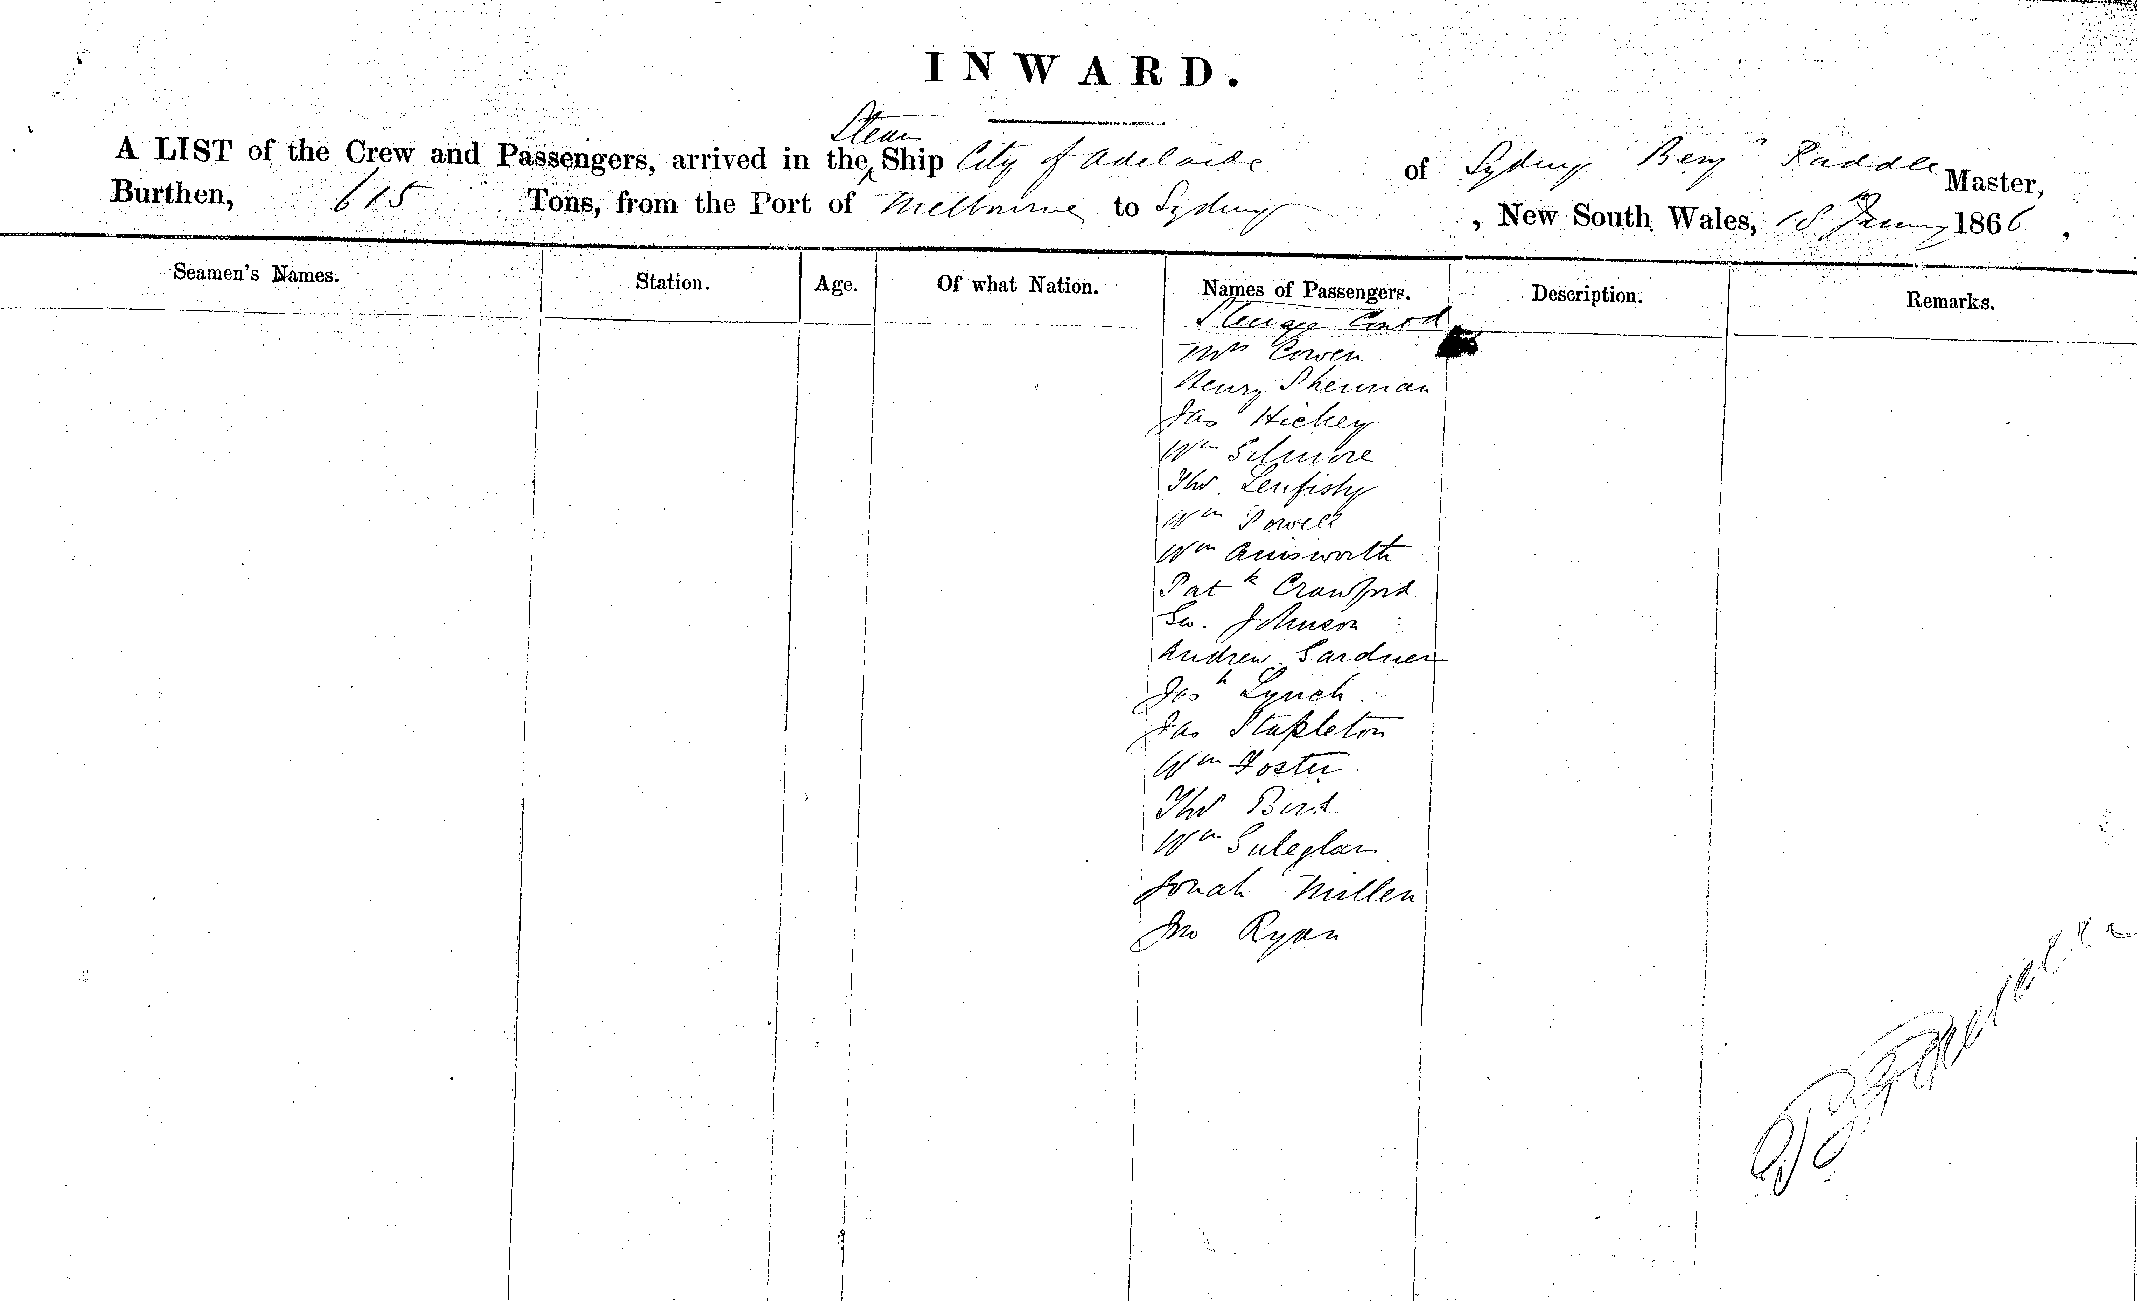 INWARD.
Steam
A LIST of the Crew and Passengers, arrived in the Ship City of Adelaide of Sydney Benjn Paddle Master,
Burthen, 615 Tons, from the Port of Melbourne to Sydney , New South Wales, 18th January 1866 ,
Seamen's Names. Station. Age. Of what Nation. Names of Passengers. Description. Remarks.
Steerage Contd
Mrs Cowen
Henry Sherman
Jas Hickey
Wm Gilmore
Thos
Wm Powell
Wm Ainsworth
Patk Crawford
Geo. Johnson
Andrew Gardner
Josh Lynch
Jas Stapleton
Wm Foster
Thos Bird
Wm
Jonah Millen
Jno Ryan